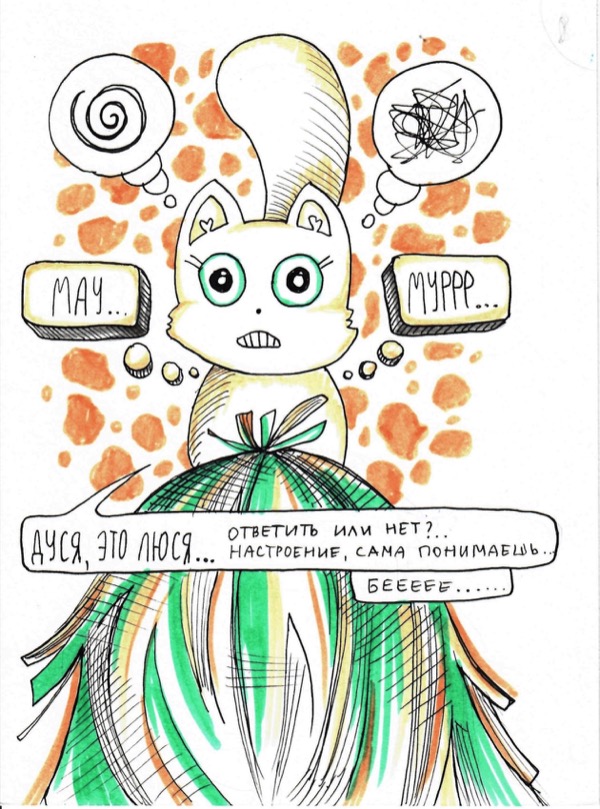 МАУ...
МУРРР...
ДУСЯ, ЭТО ЛЮСЯ...
ОТВЕТИТЬ ИЛИ НЕТ?..
НАСТРОЕНИЕ, САМА ПОНИМАЕШЬ...
БЕЕЕЕЕ......